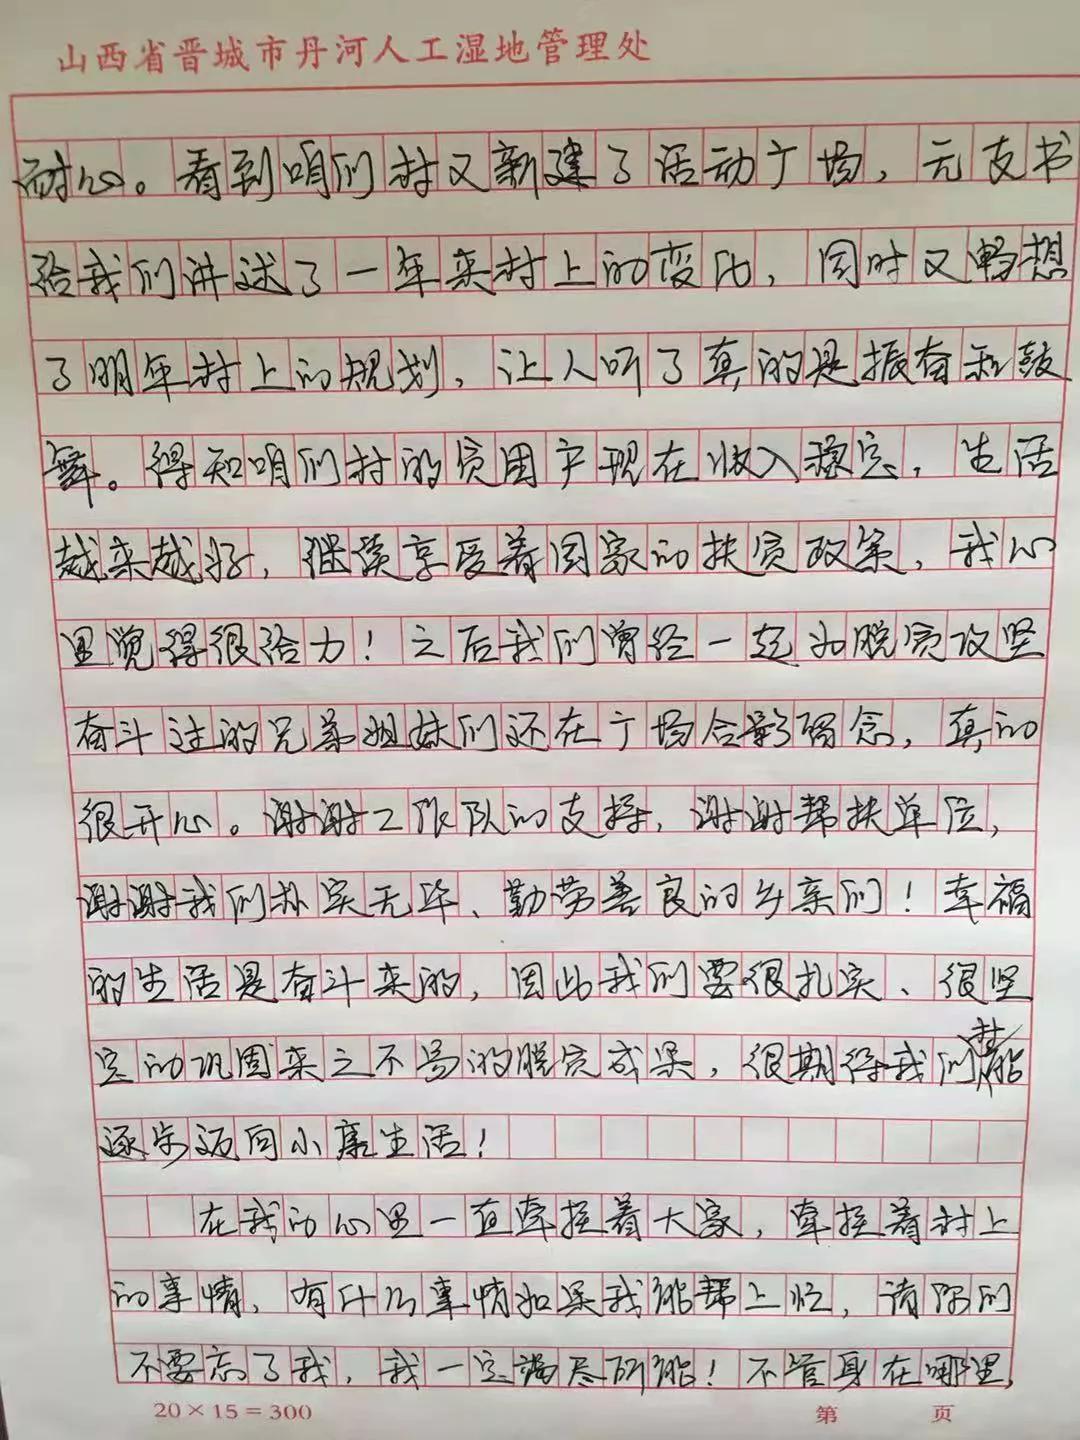 山西省晋城市丹河人工湿地管理处
耐心。看到咱们村又新建了活动广场，元支书
给我们讲述了一年来村上的变化，同时又畅想
了明年村上的规划，让人听了真的是振奋和鼓
舞。得知咱们村的贫困户现在收入稳定，生活
越来越好，继续享受着国家的扶贫政策，我心
里觉得很给力！之后我们曾经一起为脱贫攻坚
奋斗过的兄弟姐妹们还在广场合影留念，真的
很开心。谢谢工作队的支持，谢谢帮扶单位，
谢谢我们朴实无华、勤劳善良的乡亲们！幸福
的生活是奋斗来的，因此我们要很扎实、很坚
定的巩固来之不易的脱贫成果，很期待我们能
逐步迈向小康生活！
在我的心里一直牵挂着大家，牵挂着村上
的事情，有什么事情如果我能帮上忙，请你们
不要忘了我，我一定竭尽所能！不管身在哪里，
20×15=300
第 页